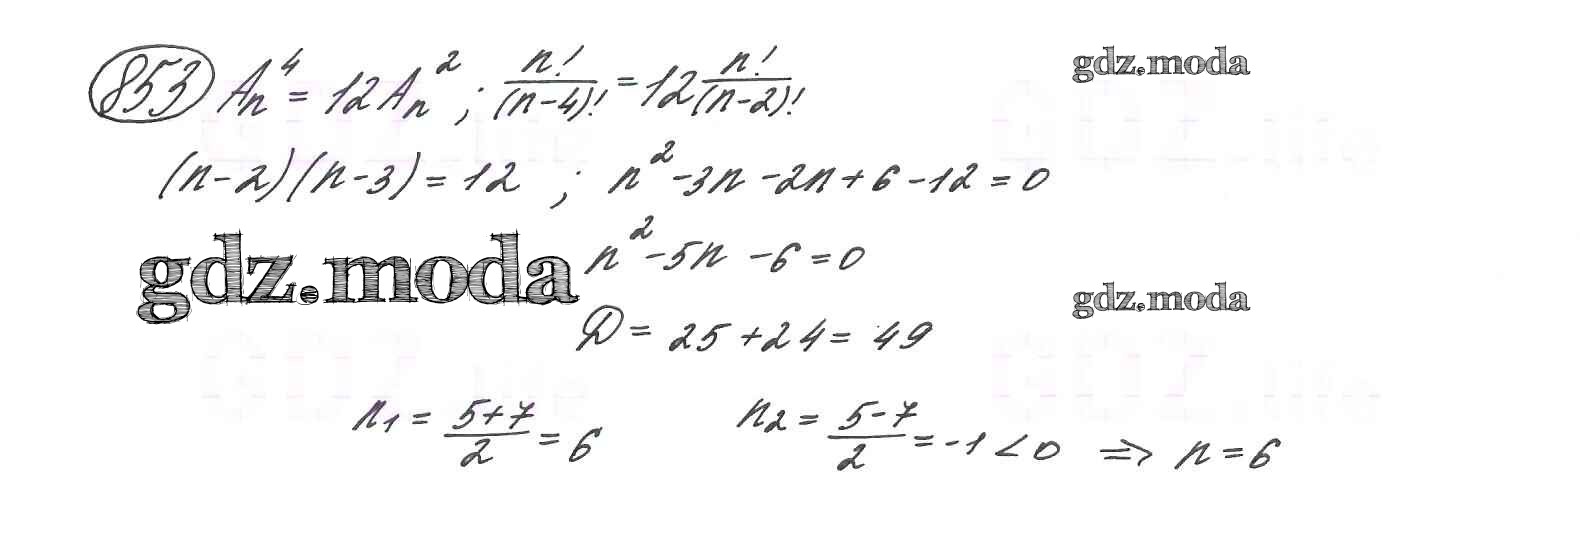 853 Aₙ⁴ = 12Aₙ² ; n!/(n-4)! = 12 n!/(n-2)!
gdz.moda
(n-2)(n-3) = 12 ; n² -3n -2n + 6 -12 = 0
gdz.moda
n² -5n -6 = 0
gdz.moda
D = 25 + 24 = 49
n₁ = (5+7)/2 = 6 n₂ = (5-7)/2 = -1 < 0 ⇒ n = 6